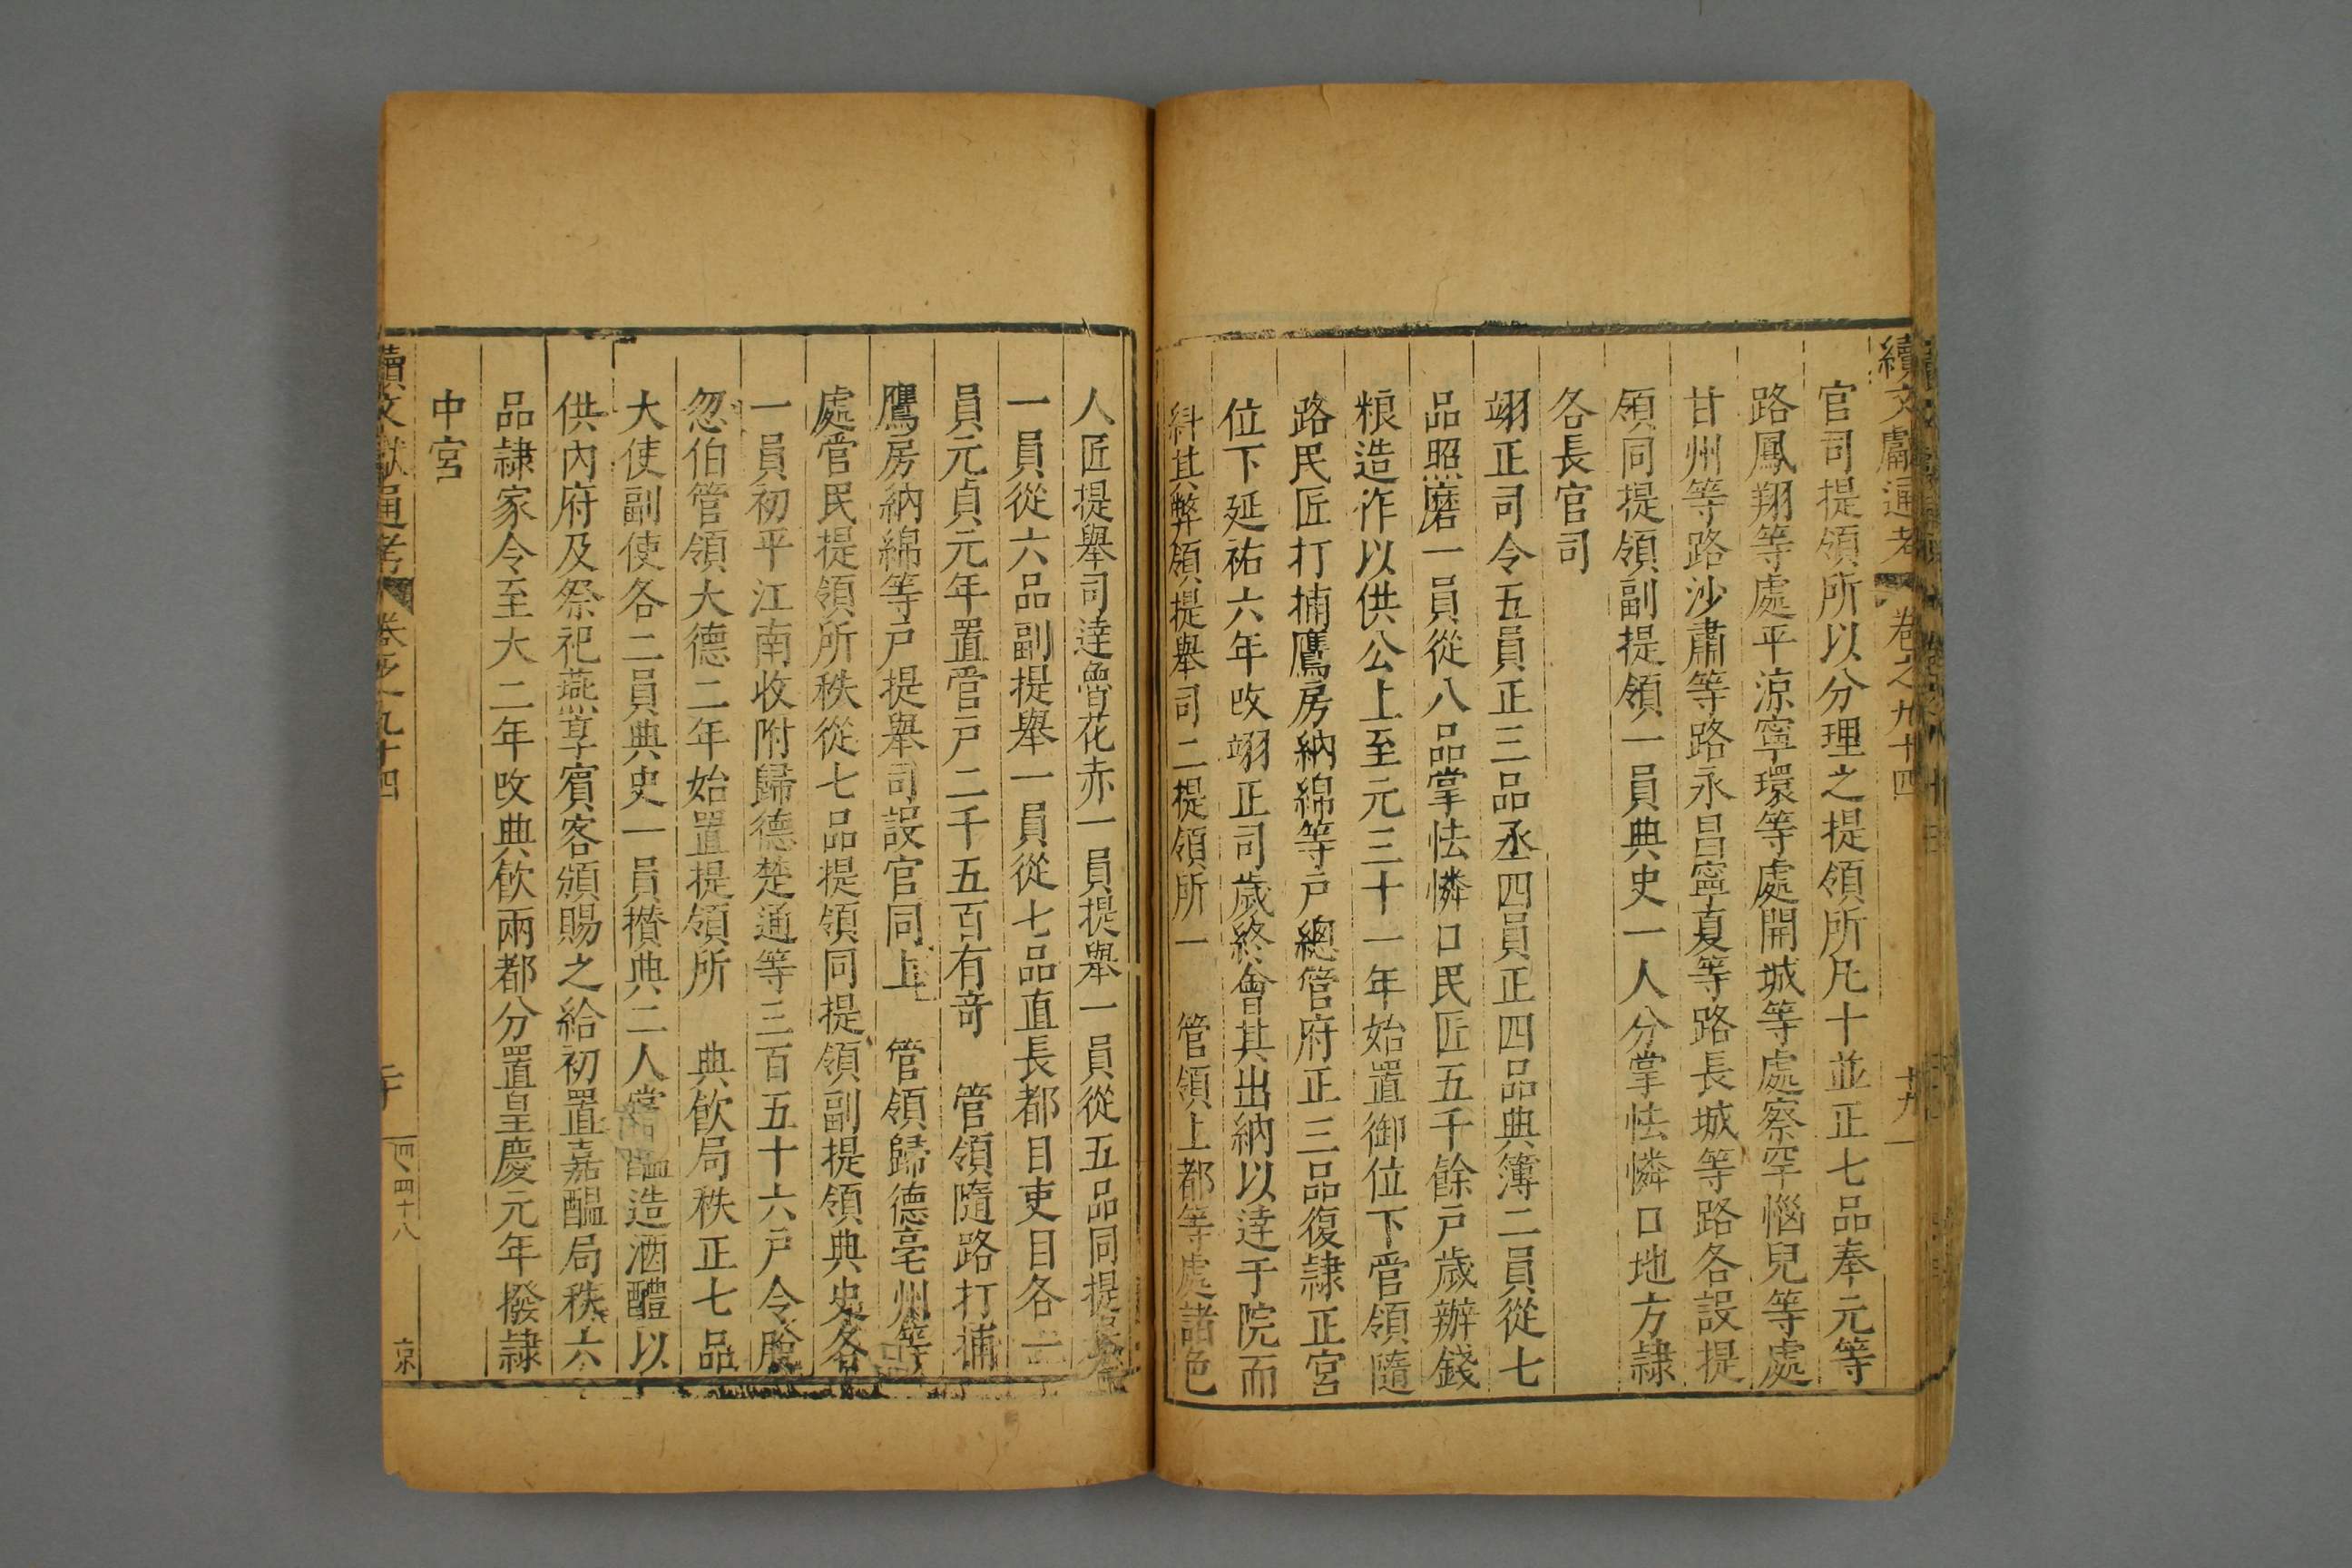 續文獻通考 卷之九十四 十九
官司提領所以分理之提領所凡十並正七品奉元等
路鳳翔等處平涼寧環等處開城等處察罕惱兒等處
甘州等路沙肅等路永昌寧夏等路長城等路各設提
領同提領副提領一員典史一人分掌怯憐口地方隷
各長官司
翊正司令五員正三品丞四員正四品典簿二員從七
品照磨一員從八品掌怯憐口民匠五千餘戸歲辦錢
粮造作以供公上至元三十一年始置御位下管領隨
路民匠打捕鷹房納綿等戸總管府正三品復隷正宮
位下延祐六年改翊正司歲終會其出納以達于院而
糾其弊領提舉司二提領所一 管領上都等處諸色
人匠提舉司達魯花赤一員提舉一員從五品同提舉
一員從六品副提舉一員從七品直長都目吏目各一
員元貞元年置管戸二千五百有奇 管領隨路打捕
鷹房納綿等戸提舉司設官同上 管領歸德亳州等
處管民提領所秩從七品提領同提領副提領典史各
一員初平江南收附歸德楚通等三百五十六戸令脫
忽伯管領大德二年始置提領所 典飲局秩正七品
大使副使各二員典史一員攢典二人掌醞造酒醴以
供內府及祭祀燕享賓客頒賜之給初置嘉醞局秩六
品隷家令至大二年改典飲兩都分置皇慶元年撥隷
中宮
續文獻通考 卷之九十四 二十 何四十八 京